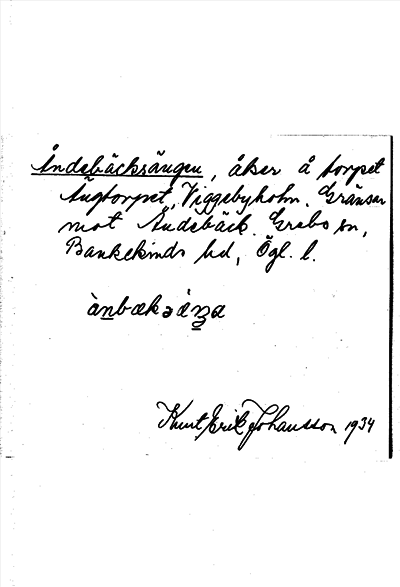 Åndebäcksängen, åker å torpet
Ängtorpet, Viggebyholm. Gränsar
mot Åndebäck. Grebo sn,
Bankekinds hd, Ögl. l.
Kurt Erik Johansson 1934